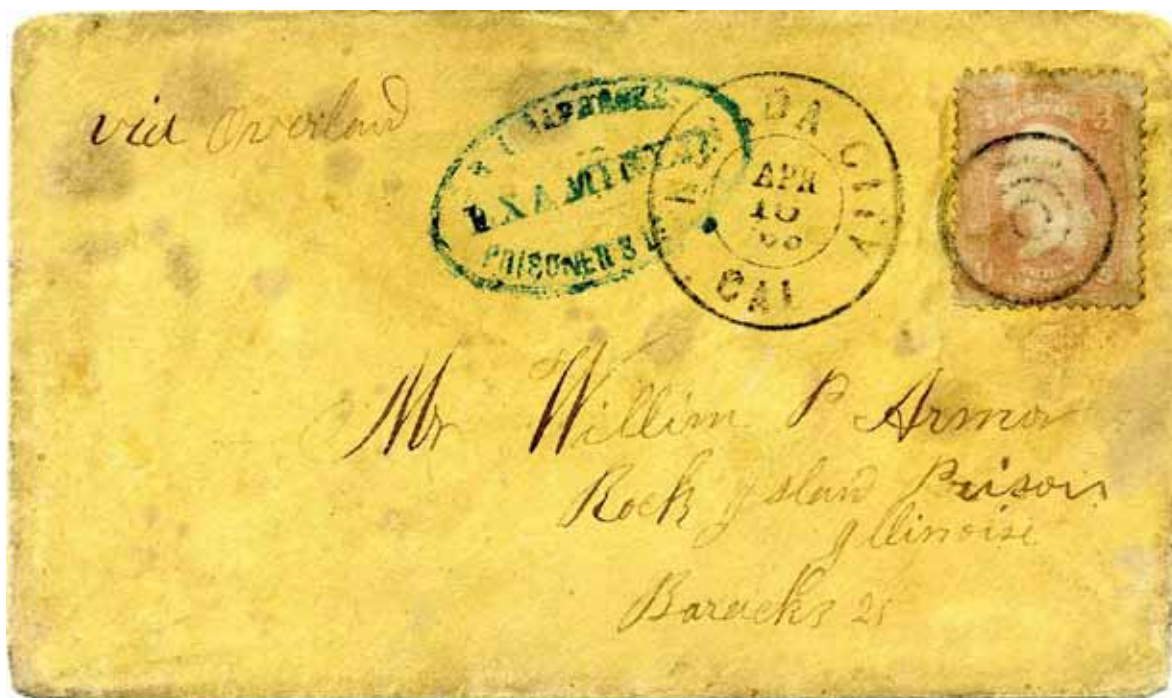 via Overland
EXAMINED
PRISONER'S
DA CITY
APR
CAL
Mr Willim P Armor
Rock Island Prison
Illinoise
Baracks